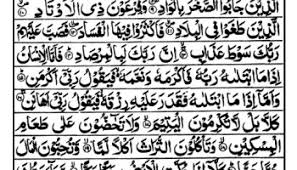 الَّذِيْنَ جَابُوا الصَّخْرَ بِالْوَادِ ۝ وَفِرْعَوْنَ ذِي الْاَوْتَادِ ۝
الَّذِيْنَ طَغَوْا فِي الْبِلَادِ ۝ فَاَكْثَرُوْا فِيْهَا الْفَسَادَ ۝ فَصَبَّ عَلَيْهِمْ
رَبُّكَ سَوْطَ عَذَابٍ ۝ اِنَّ رَبَّكَ لَبِالْمِرْصَادِ ۝ فَاَمَّا الْاِنْسَانُ
اِذَا مَا ابْتَلٰىهُ رَبُّهٗ فَاَكْرَمَهٗ وَنَعَّمَهٗ فَيَقُوْلُ رَبِّيْٓ
وَاَمَّآ اِذَا مَا ابْتَلٰىهُ فَقَدَرَ عَلَيْهِ رِزْقَهٗ فَيَقُوْلُ رَبِّيْٓ اَهَانَنِ ۝
كَلَّا بَلْ لَّا تُكْرِمُوْنَ الْيَتِيْمَ ۝ وَلَا تَحٰٓضُّوْنَ عَلٰى طَعَامِ
الْمِسْكِيْنِ ۝ وَتَاْكُلُوْنَ التُّرَاثَ اَكْلًا لَّمًّا ۝ وَّتُحِبُّوْنَ الْمَالَ